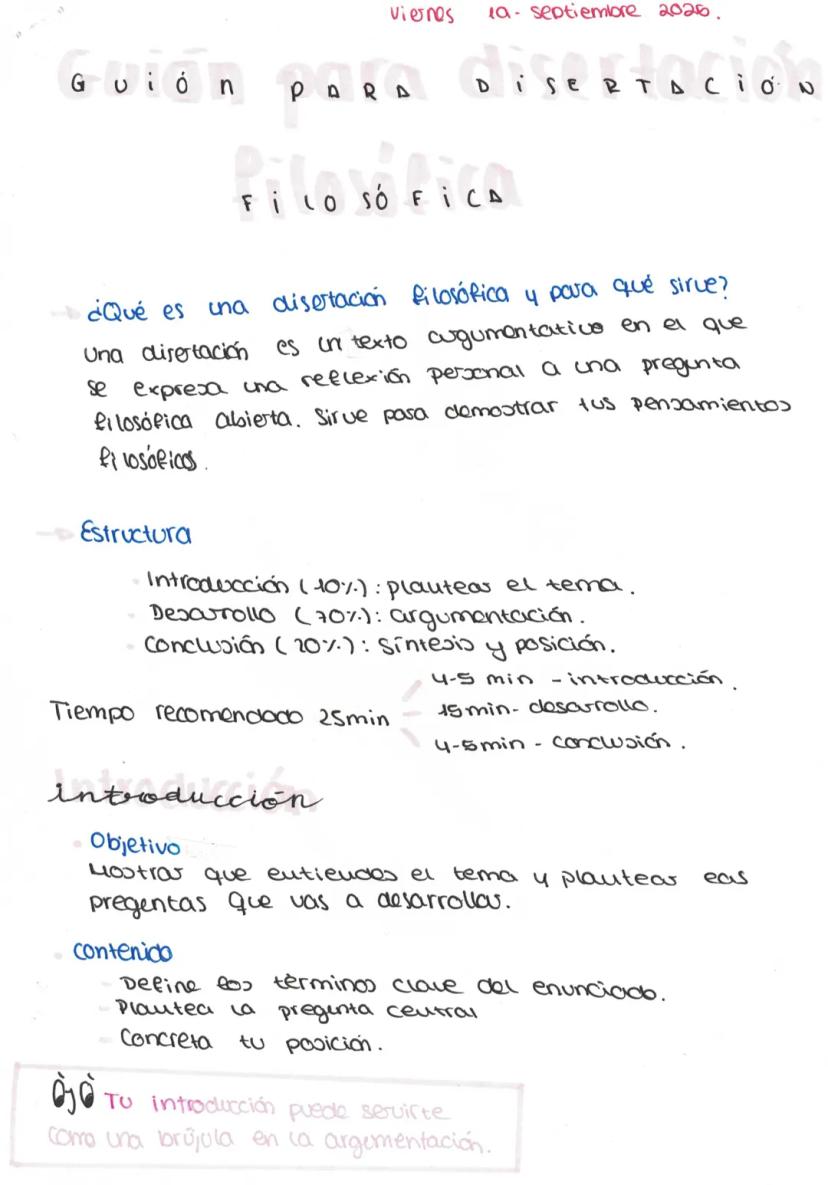 Viernes 19 - septiembre 2025.
Guión para disertación
filosófica
¿Qué es una disertación filosófica y para qué sirve?
Una disertación es un texto argumentativo en el que
se expresa una reflexión personal a una pregunta
filosófica abierta. Sirve para demostrar tus pensamientos
filosóficos.
Estructura
Introducción (10%): plantear el tema.
Desarrollo (70%): argumentación.
Conclusión (20%): síntesis y posición.
4-5 min - introducción.
Tiempo recomendado 25min
15min- desarrollo.
4-5min - conclusión.
introducción
Objetivo
Mostrar que entiendes el tema y plantear las
pregentas que vas a desarrollar.
contenido
Define los términos clave del enunciado.
Plantea la pregenta central
Concreta tu posición.
Òjò Tu introducción puede servirte
como una brújula en la argementación.